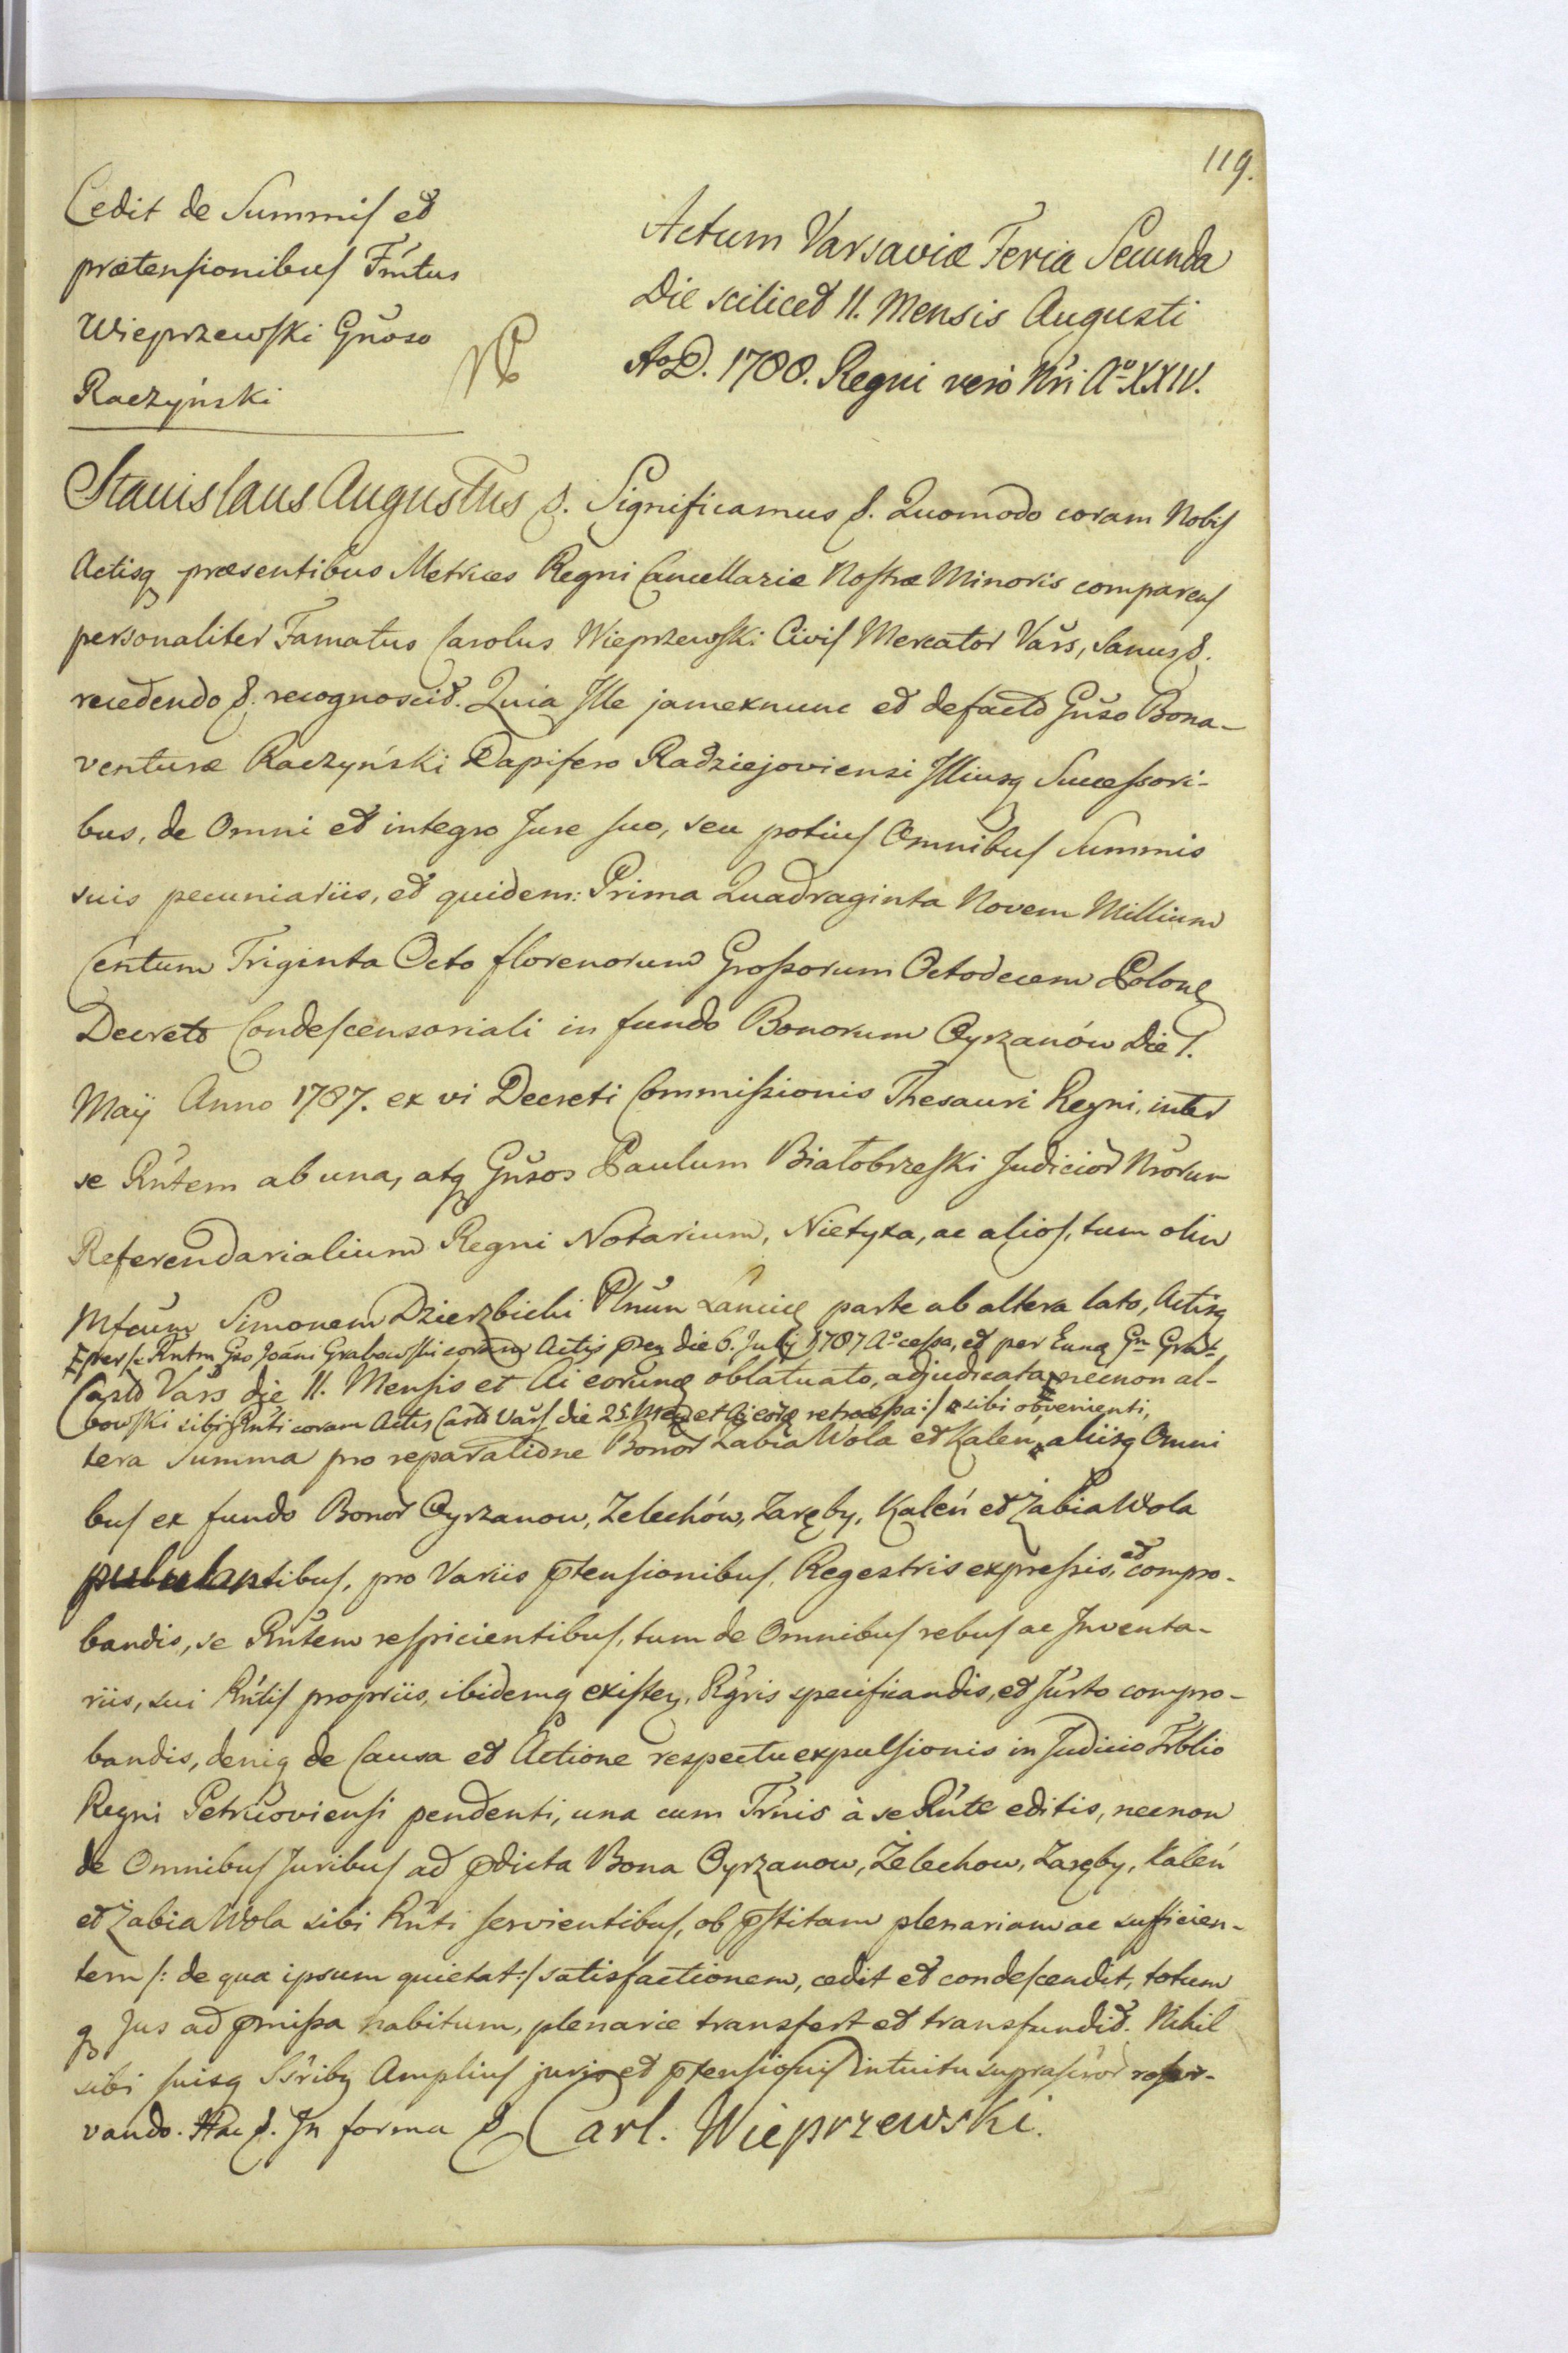 119.
Cedit de Summis et
prætensionibus Fmtus
Wieprzewski Gnoso
Raczyński
Actum Varsaviæ Feria Secunda
Die scilicet 11. Mensis Augusti
AoD. 1788. Regni vero Nri Ao XXIV.
Stanislaus Augustus &. Significamus &. Quomodo coram Nobis
Actisq præsentibus Metrices Regni Cancellariæ Nostræ Minoris comparens
personaliter Famatus Carolus Wieprzewski Civis Mercator Vars, Sanus &.
recedendo &. recognoscit. Quia Ille jamexnunc et defacto Gnso Bona-
venturæ Raczyński Dapifero Radziejoviensi Illiusq Successori-
bus, de Omni et integro Jure suo, seu potius Omnibus Summis
suis pecuniariis, et quidem: Prima Quadraginta Novem Millium
Centum Triginta Octo florenorum Grossorum Octodecem Polon
Decreto Condescensoriali in fundo Bonorum Oyrzanów Die 1.
Maij Anno 1787. ex vi Decreti Commissionis Thesauri Regni, inter
se Rntem ab una, atq Gnsos Paulum Białobrzeski Judicior Nrorum
Referendarialium Regni Notarium, Nietyxa, ac alios, tum olim
Mfcum Simonem Dzierzbicki Plnum Lancic parte ab altera lato, Actisq
per se Rntm Gso Joani Grabowski coram Actis pren die 6. July 1787 Ao cessa, et per Eunq Gn Gra-
Castr Vars die 11. Mensis et Ai eorund oblatuato, adjudicata necnon al-
bowski sibi Rnti coram Actis Castr Vars die 25. Mens et Ai eord retrocessa :/ sibi obvenienti,
tera Summa pro reparatione Bonor Zabia Wola et Kalen, aliisq Omni
bus ex fundo Bonor Oyrzanow, Zelechów, Zaręby, Kaleń et Zabia Wola
pululantibus, pro Variis ptensionibus, Regestris expressis, et compro-
bandis, se Rntem respicientibus, tum de Omnibus rebus ac Inventa-
riis, sui Rntis propriis, ibidemq existen, Rgris specificandis, et Jurto compro-
bandis, deniq de Causa et Actione respectu expulsionis in Judicio Trblio
Regni Petricoviensi pendenti, una cum Trnis à se Rnte editis, necnon
de Omnibus Juribus ad pdicta Bona Oyrzanow, Żelechow, Zaręby, Kaleń
et Zabia Wola sibi Rnti servientibus, ob pstitam plenariam ac sufficien-
tem /: de qua ipsum quietat :/ satisfactionem, cedit et condescendit, totum
q Jus ad pmissa habitum, plenarie transfert et transfundit. Nihil
sibi suisq Ssribq Amplius juris et ptensionis intuitu suprascror reser-
vando. Hac &. In forma & Carl. Wieprzewski.